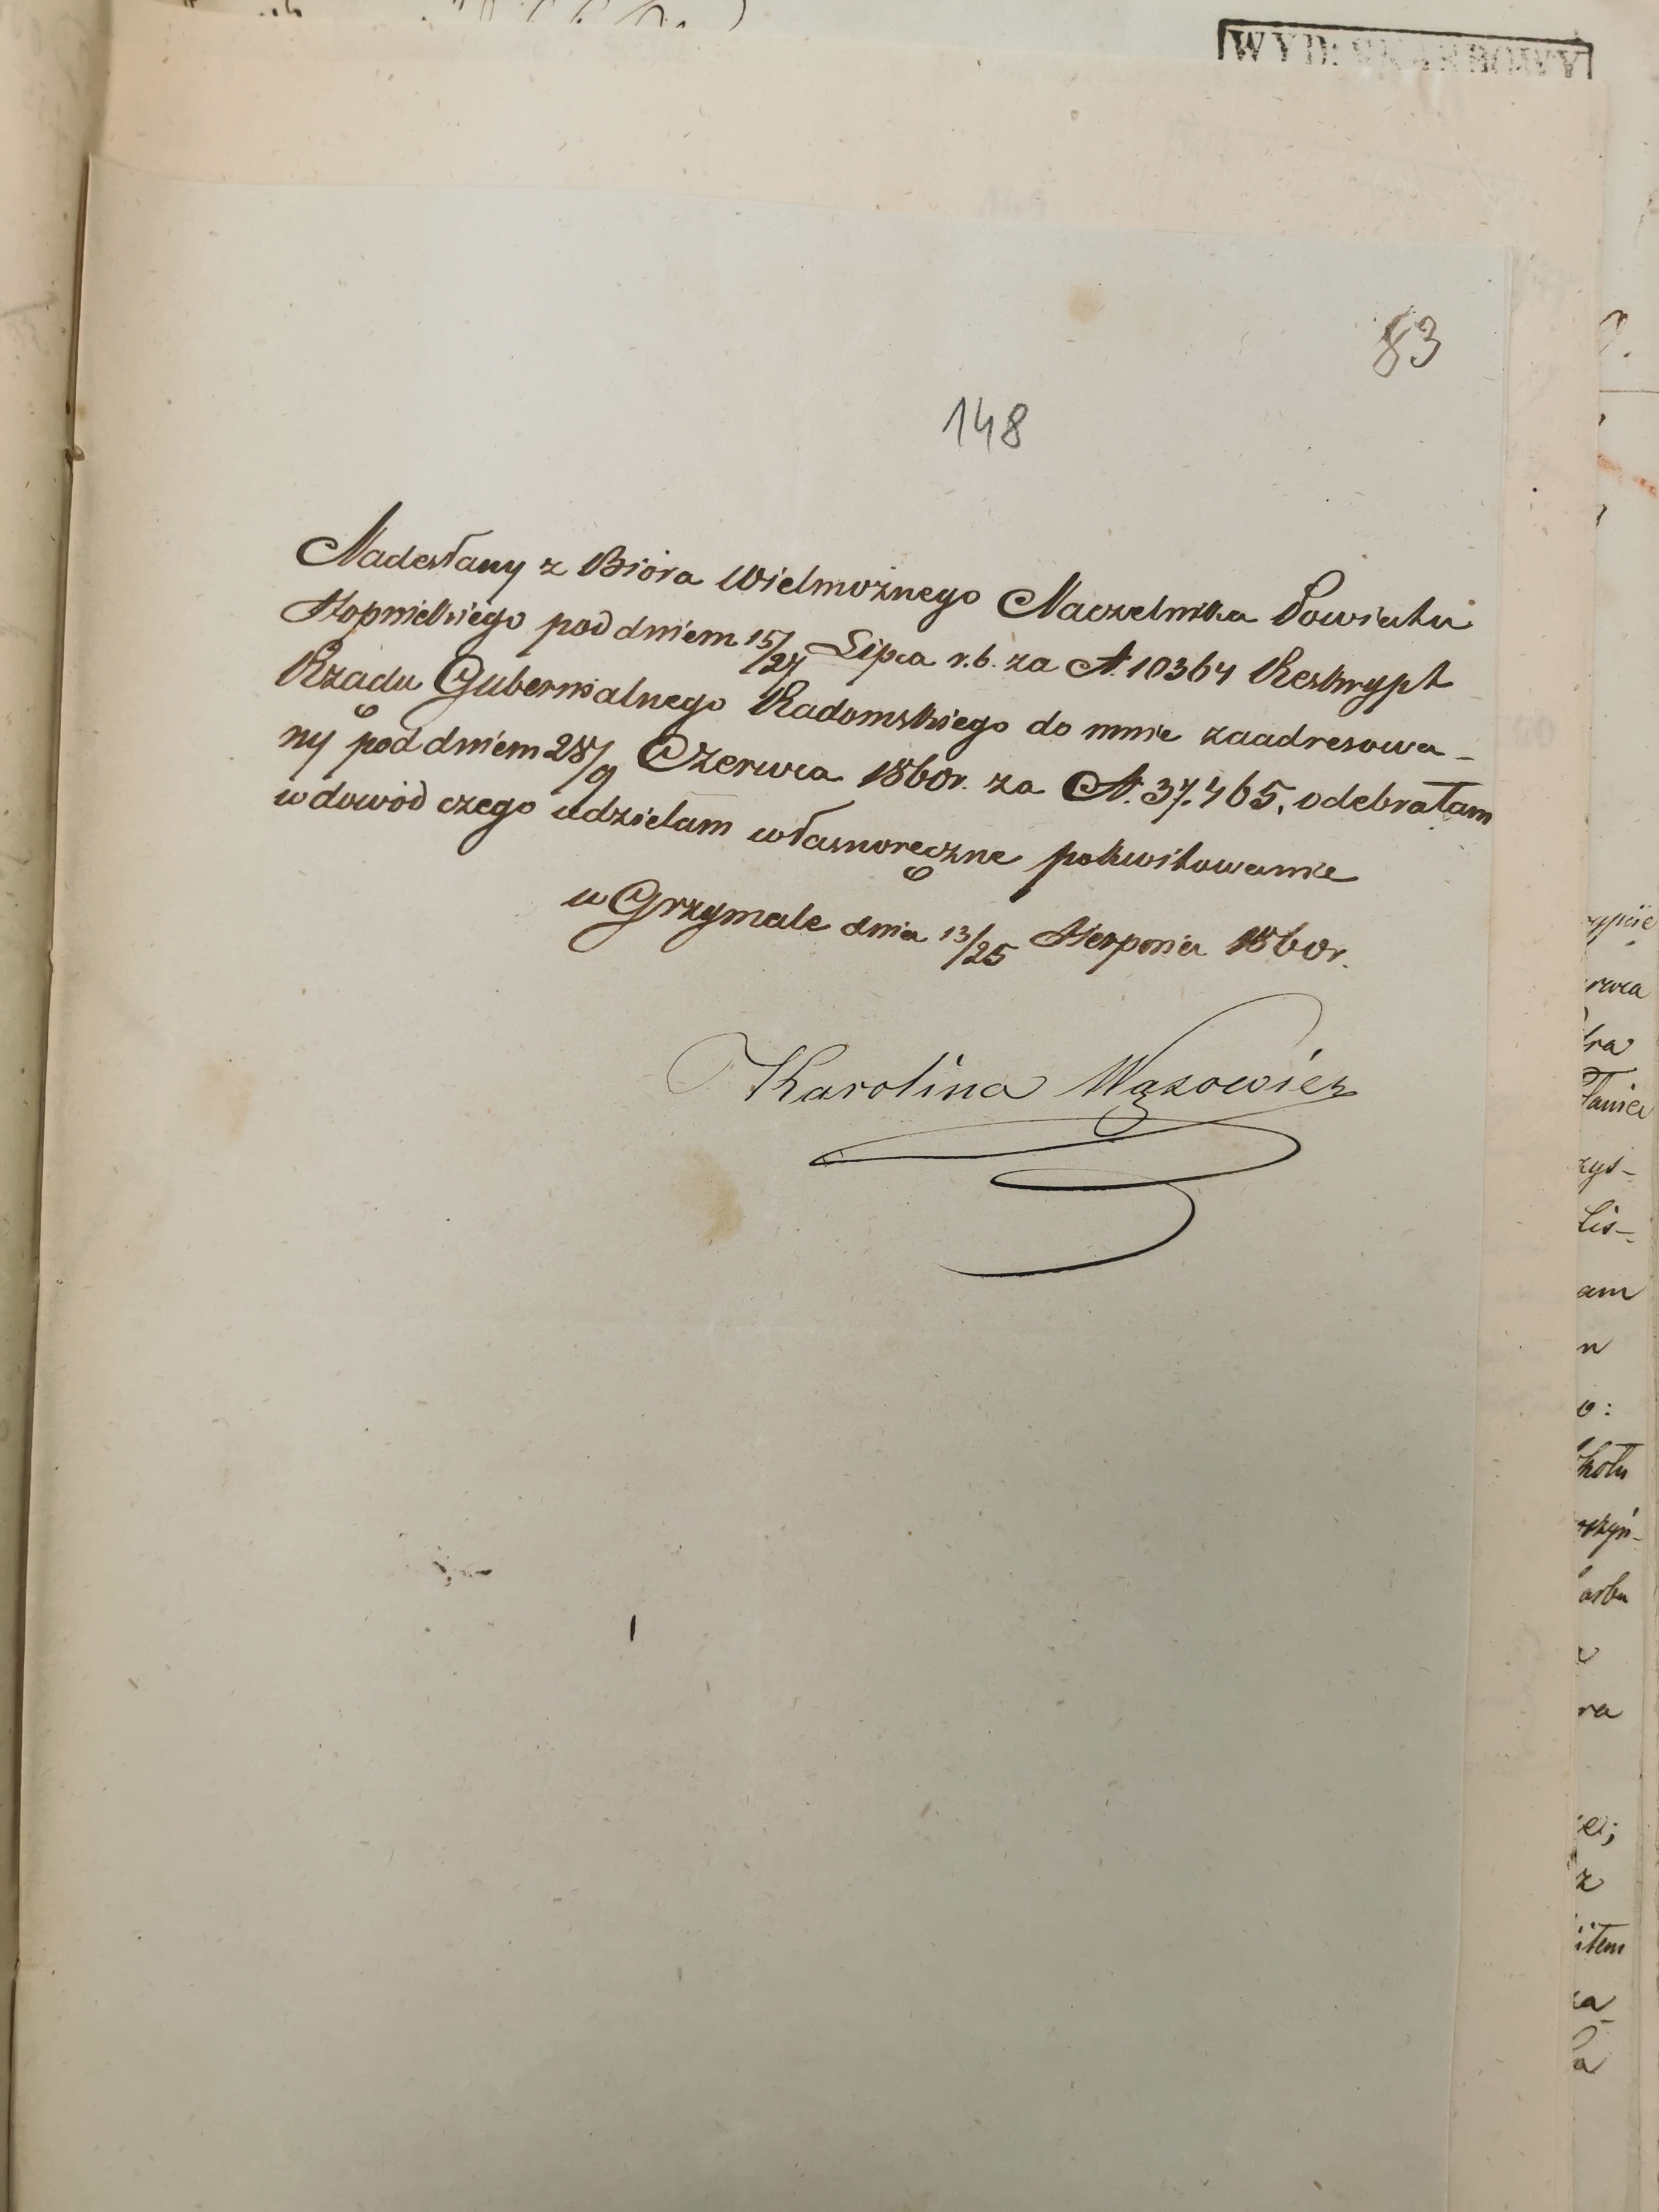 WYD: SKARBOWY
83
148
Nadesłany z Bióra Wielmożnego Naczelnika Powiatu
Stopnickiego pod dniem 15/27 Lipca r.b. za N. 10364 Reskrypt
Rządu Gubernialnego Radomskiego do mnie zaadresowa-
ny pod dniem 28/9 Czerwca 1860r. za N. 37.465, odebrałam
w dowód czego udzielam własnoręczne pokwitowanie
w Grzymale dnia 13/25 Sierpnia 1860r.
Karolina Wązowicz
rwca
Lis-
am
n
o:
arbu
ra
z